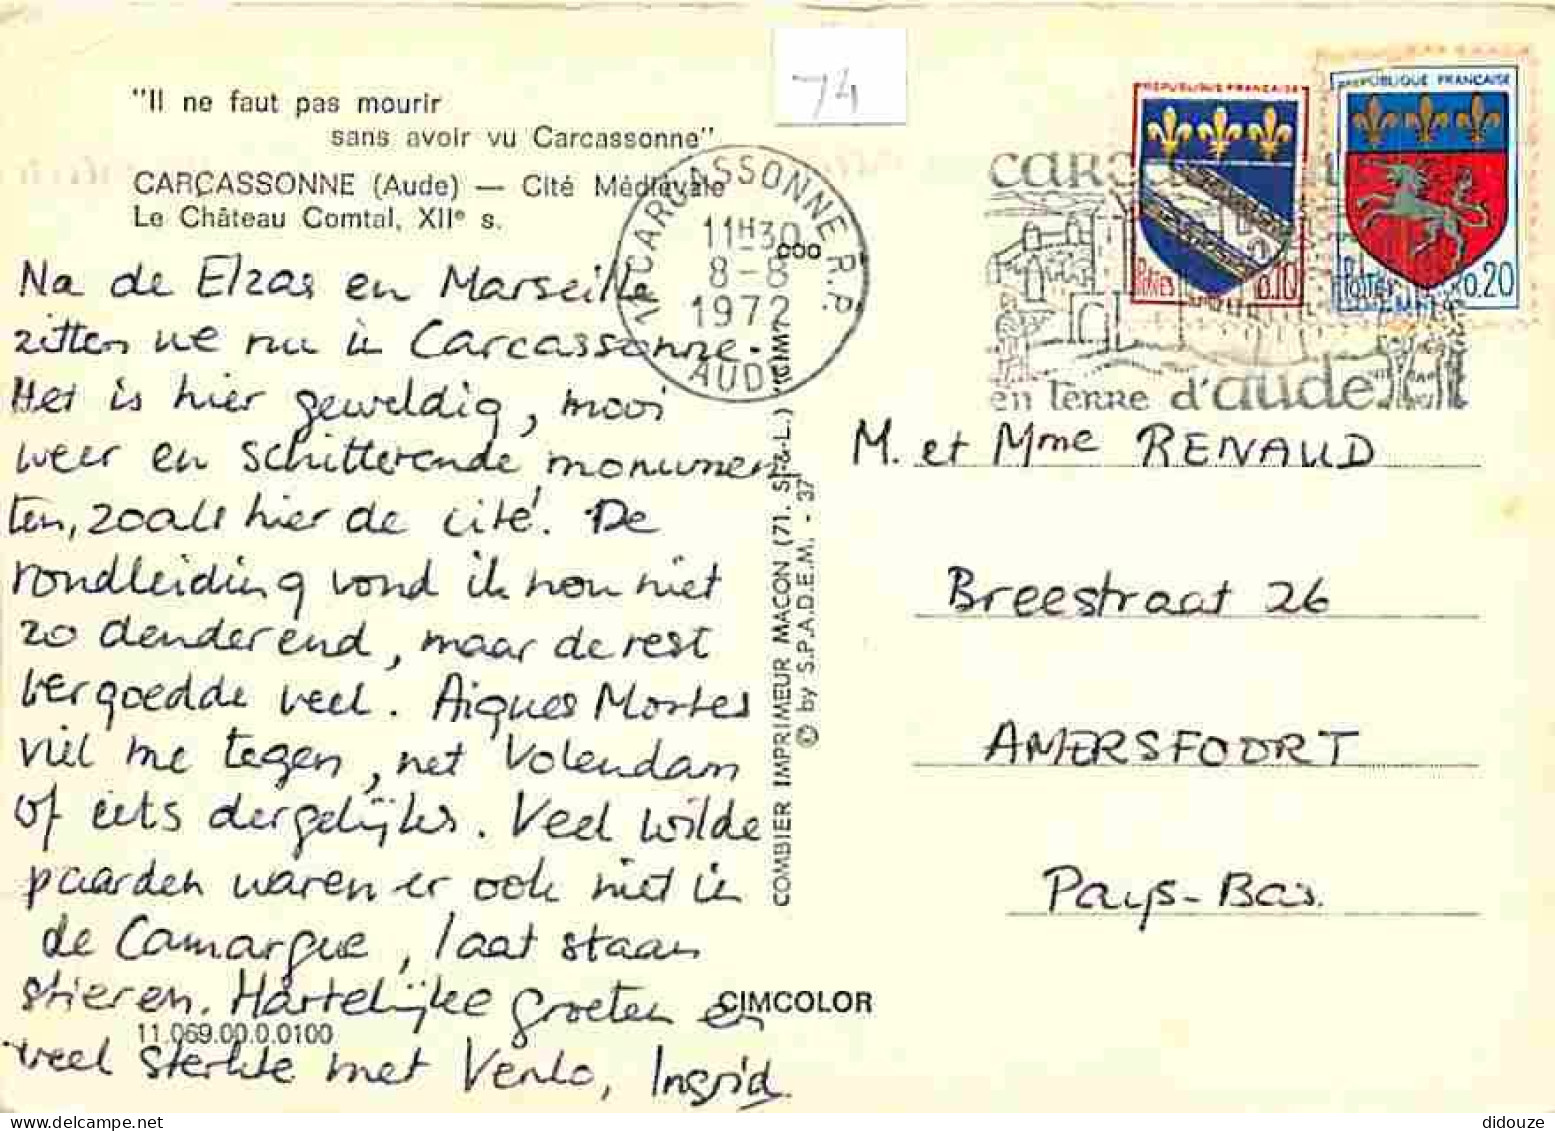 74
"Il ne faut pas mourir
sans avoir vu Carcassonne"
CARCASSONNE (Aude) — Cité Médiévale
Le Château Comtal, XIIe s.
CARCASSONNE R.P.
11H30
8-8
1972
AUDE
REPUBLIQUE FRANÇAISE
POSTES
0.10
REPUBLIQUE FRANÇAISE
0.20
en terre d'aude
Na de Elzas en Marseille
zitten we nu in Carcassonne.
Het is hier geweldig, mooi
weer en schitterende monumen
ten, zoals hier de cité. De
rondleiding vond ik nou niet
zo denderend, maar de rest
vergoedde veel. Aigues Mortes
viel me tegen, net Volendam
of iets dergelijks. Veel wilde
paarden waren er ook niet in
de Camargue, laat staan
stieren. Hartelijke groeten en
veel sterkte met Venlo, Ingrid.
11.069.00.0.0100
CIMCOLOR
COMBIER IMPRIMEUR MACON (71. S.-&-L.) "CIM"
© by S.P.A.D.E.M. - 37
M. et Mme RENAUD
Breestraat 26
AMERSFOORT
Pays-Bas.
didouze